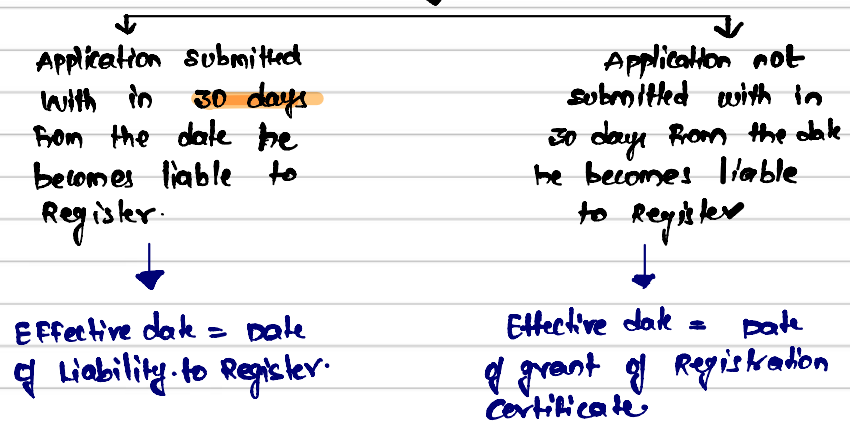 Application submitted
with in 30 days
from the date he
becomes liable to
Register.
Effective date = Date
of Liability to Register.
Application not
submitted with in
30 days from the date
he becomes liable
to Register
Effective date = Date
of grant of Registration
Certificate